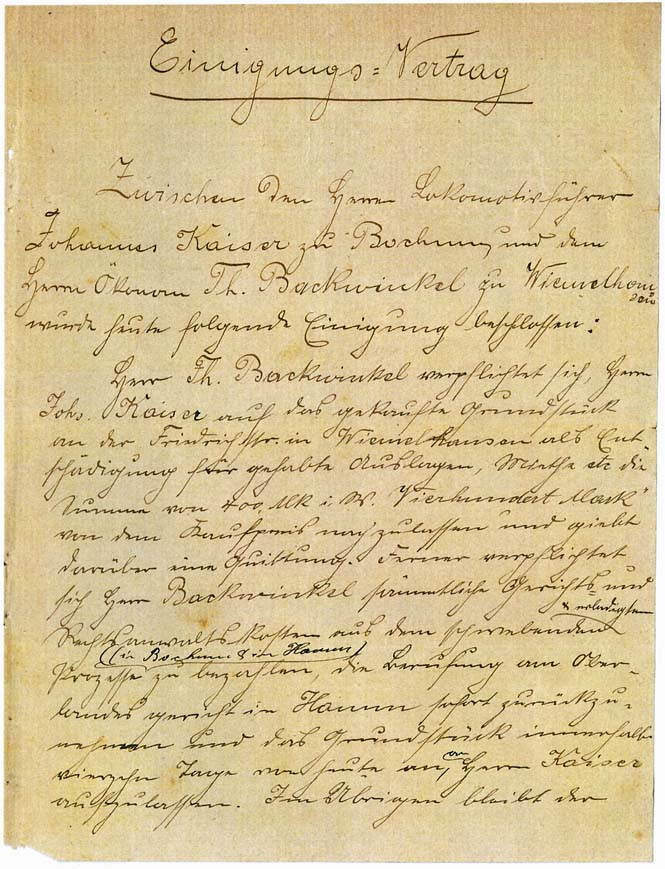 Einigungs=Vertrag
Zwischen den Herrn Lokomotivführer
Johannes Kaiser zu Bochum, und dem
Herrn Ökonom Th. Backwinkel zu Wiemelhau
sen
wurde heute folgende Einigung beschlossen:
Herr Th. Backwinkel verpflichtet sich, Herrn
Johs. Kaiser auf das gekaufte Grundstück
an der Friedrichstr. in Wiemelhausen als Ent-
schädigung für gehabte Auslagen, Miethe etc die
Summe von 400 Mk i. W. „Vierhundert Mark"
von dem Kaufpreis nachzulassen und giebt
darüber eine Quittung. Ferner verpflichtet
sich Herr Backwinkel sämmtliche Gerichts= und
& erledigten
Rechtsanwaltskosten aus dem schwebenden
(in Bochum & in Hamm)
Prozesse zu bezahlen, die Berufung am Ober-
landesgericht in Hamm sofort zurückzu-
nehmen und das Grundstück innerhalb
vierzehn Tage von heute an, an Herrn Kaiser
aufzulassen. Im Übrigen bleibt der